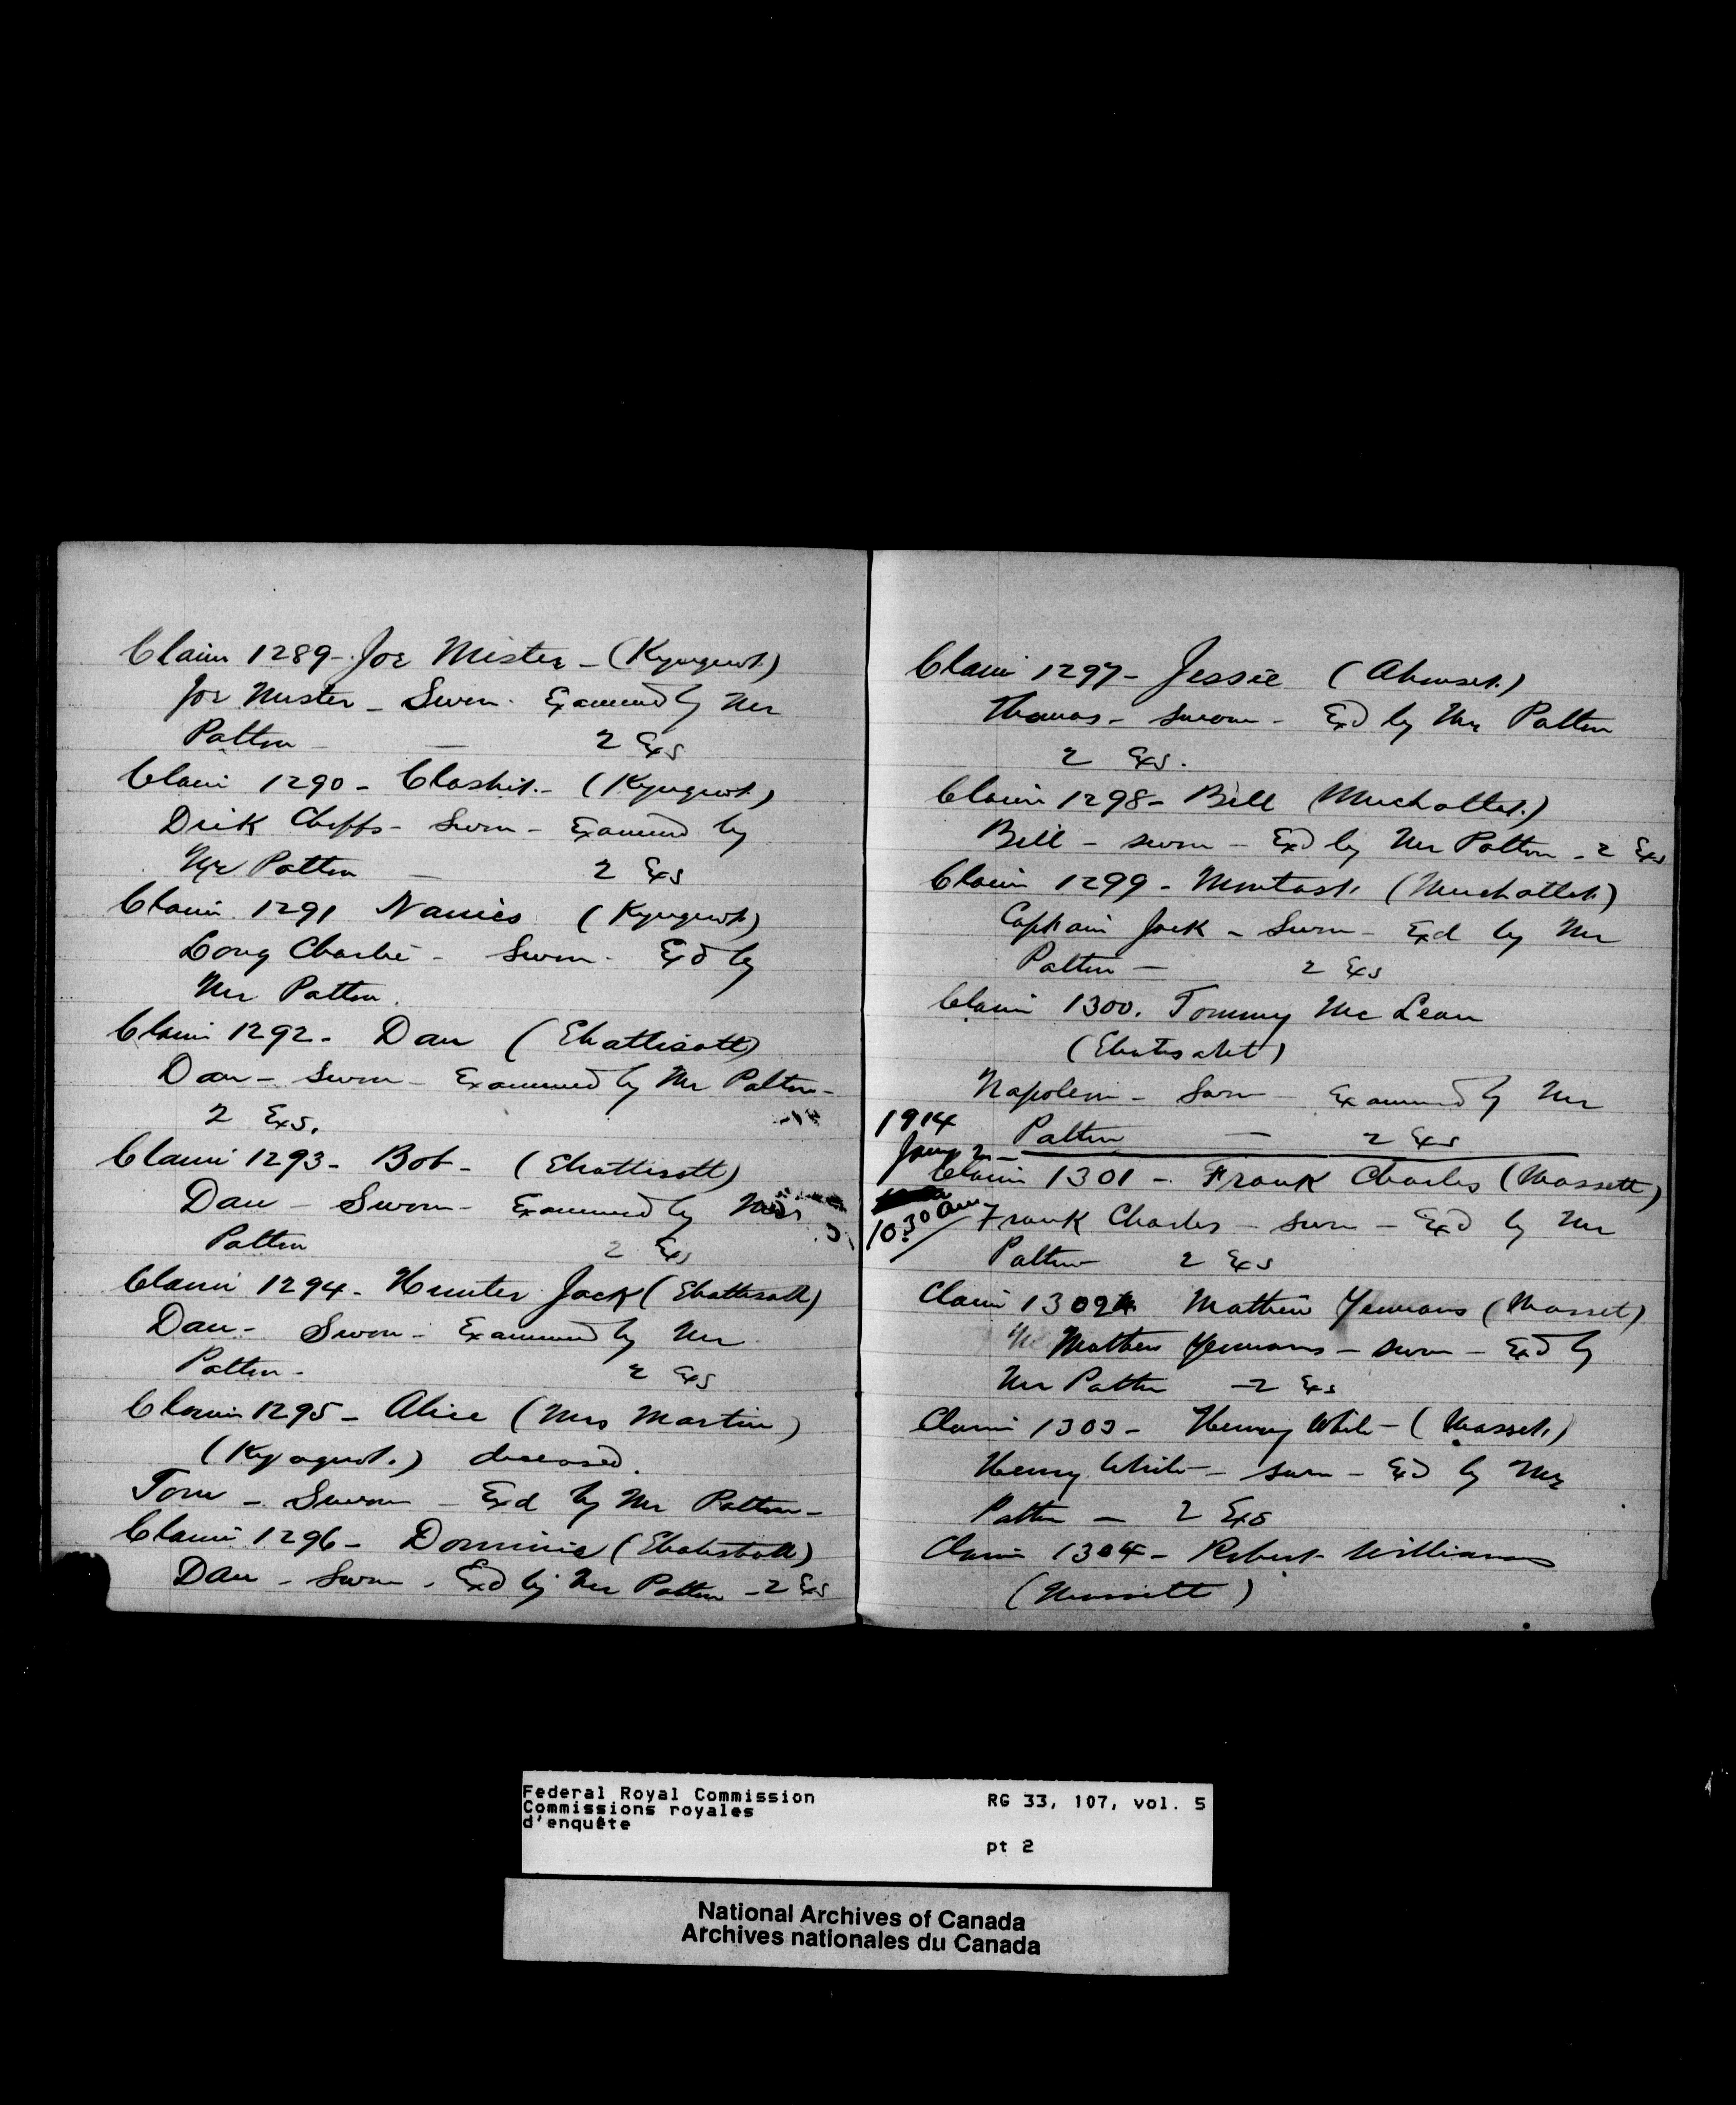 Claim 1289 - Joe Mister - (Kyuquot)
Joe Mister - Sworn. Examined by Mr
Patton - — 2 Exs
Claim 1290 - Clashit - (Kyuquot)
Dick Cheffs - Sworn - Examined by
Mr Patton — 2 Exs
Claim 1291 Nanies (Kyuquot)
Long Charlie - Sworn - Exd by
Mr Patton.
Claim 1292 - Dan (Ehattisatt)
Dan - Sworn - Examined by Mr Patton -
2 Exs.
Claim 1293 - Bob - (Ehattisatt)
Dan - Sworn - Examined by Mr
Patton 2 Exs
Claim 1294 - Hunter Jack (Ehattisatt)
Dan - Sworn - Examined by Mr
Patton - 2 Exs
Claim 1295 - Alice (Mrs Martin)
(Kyoquot.) deceased.
Tom - Sworn - Exd by Mr Patton -
Claim 1296 - Dominic (Ehatishatt)
Dan - Sworn - Exd by Mr Patton - 2 Exs
Claim 1297 - Jessie (Ahouset.)
Thomas - sworn - Exd by Mr Patton
2 Exs.
Claim 1298 - Bill (Muchallat.)
Bill - sworn - Exd by Mr Patton - 2 Exs
Claim 1299 - (Muchallat)
Captain Jack - Sworn - Exd by Mr
Patton — 2 Exs
Claim 1300. Tommy Mc Lean
(Ehatisaht)
Napoleon - Sworn - Examined by Mr
Patton — 2 Exs
1914
Jany 2 -
10.30 am
Claim 1301 - Frank Charles (Massett)
Frank Charles - sworn - Exd by Mr
Patton 2 Exs
Claim 1302 Mathew Yeomans (Masset)
Mathew Yeomans - sworn - Exd by
Mr Patton - 2 Exs
Claim 1303 - Henry White - (Masset.)
Henry White - sworn - Exd by Mr
Patton — 2 Exs
Claim 1304 - Robert Williams
(Massett)
Federal Royal Commission RG 33, 107, vol. 5
Commissions royales
d'enquête
pt 2
National Archives of Canada
Archives nationales du Canada